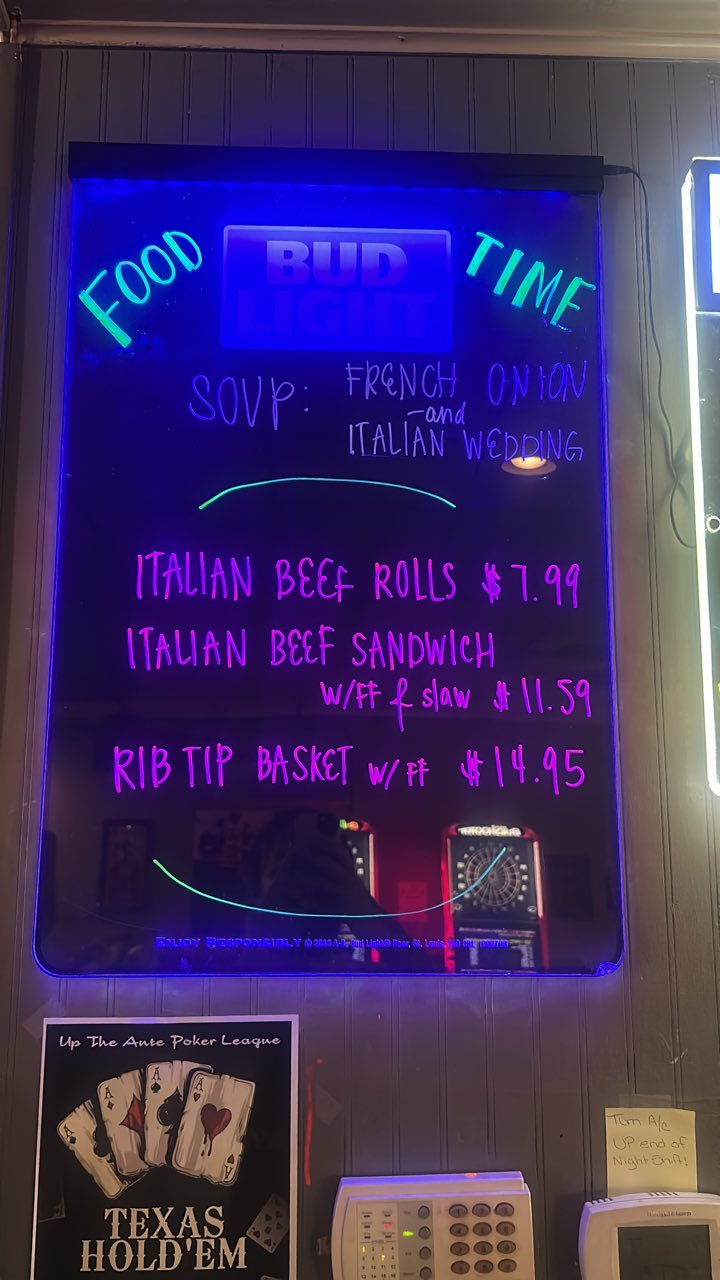 FOOD
BUD
LIGHT
TIME
SOUP: FRENCH ONION
-and
ITALIAN WEDDING
ITALIAN BEEF ROLLS $7.99
ITALIAN BEEF SANDWICH
W/FF & slaw $11.59
RIB TIP BASKET W/FF $14.95
ENJOY RESPONSIBLY © Bud Light® Beer, St. Louis, MO
Up The Ante Poker League
A
A
A
A
A
TEXAS
HOLD'EM
Turn A/C
UP end of
Night Shift!